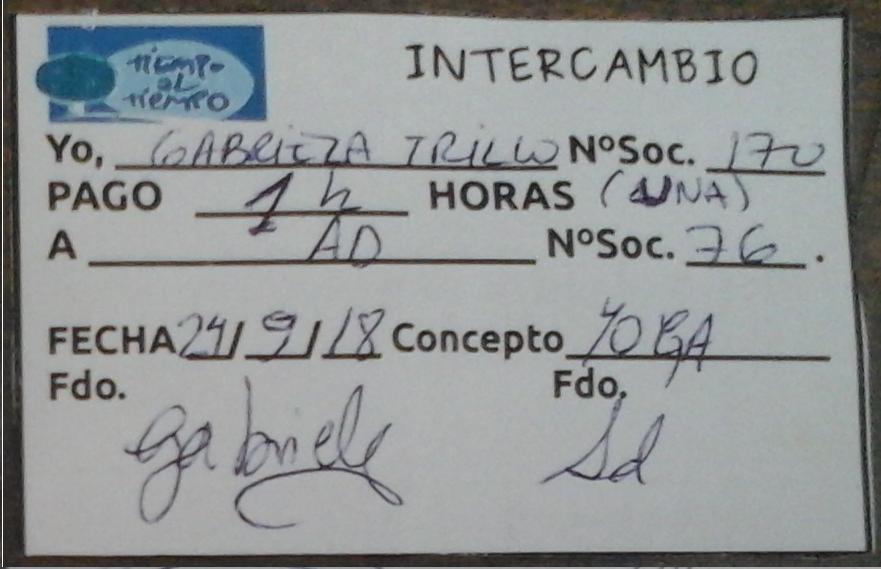 tiempo
al
tiempo
INTERCAMBIO
Yo, GABRIELA TRILLO NºSoc. 170
PAGO 1 h HORAS (UNA)
A AD NºSoc. 76.
FECHA 24/9/18 Concepto YOGA
Fdo. Fdo.
Gabriela